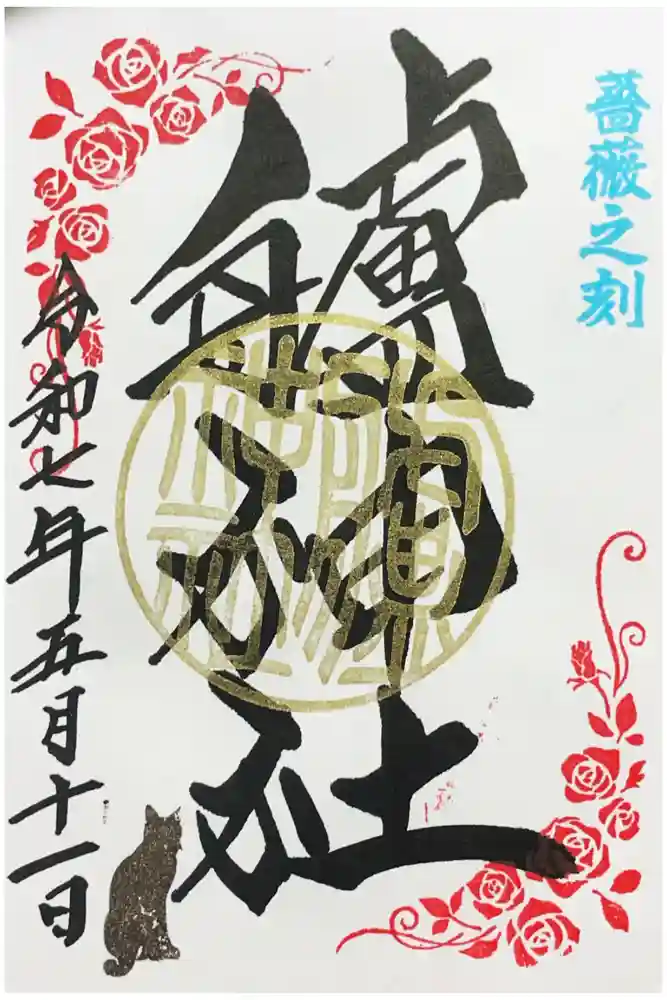 薔薇之刻
艫神社
令和七年五月十一日